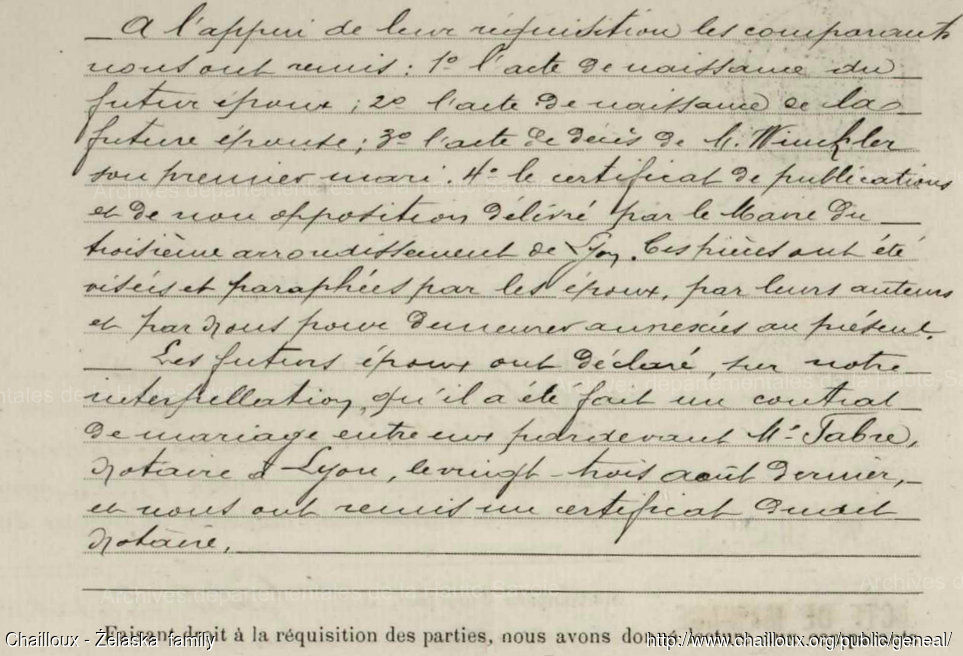 A l'appui de leur réquisition les comparants
nous ont remis : 1º l'acte de naissance du
futur époux ; 2º l'acte de naissance de la
future épouse ; 3º l'acte de décès de M. Winckler
son premier mari. 4º le certificat de publications
et de non opposition délivré par le Maire du
troisième arrondissement de Lyon. Ces pièces ont été
visées et paraphées par les époux, par leurs auteurs
et par Nous pour demeurer annexées au présent.
Les futurs époux ont déclaré, sur notre
interpellation, qu'il a été fait un contrat
de mariage entre eux pardevant Me Fabre,
Notaire à Lyon, le vingt-trois août dernier,
et nous ont remis un certificat dudit
Notaire.
Faisant droit à la réquisition des parties, nous avons donné lecture
Chailloux - Żelaska family
http://www.chailloux.org/public/geneal/